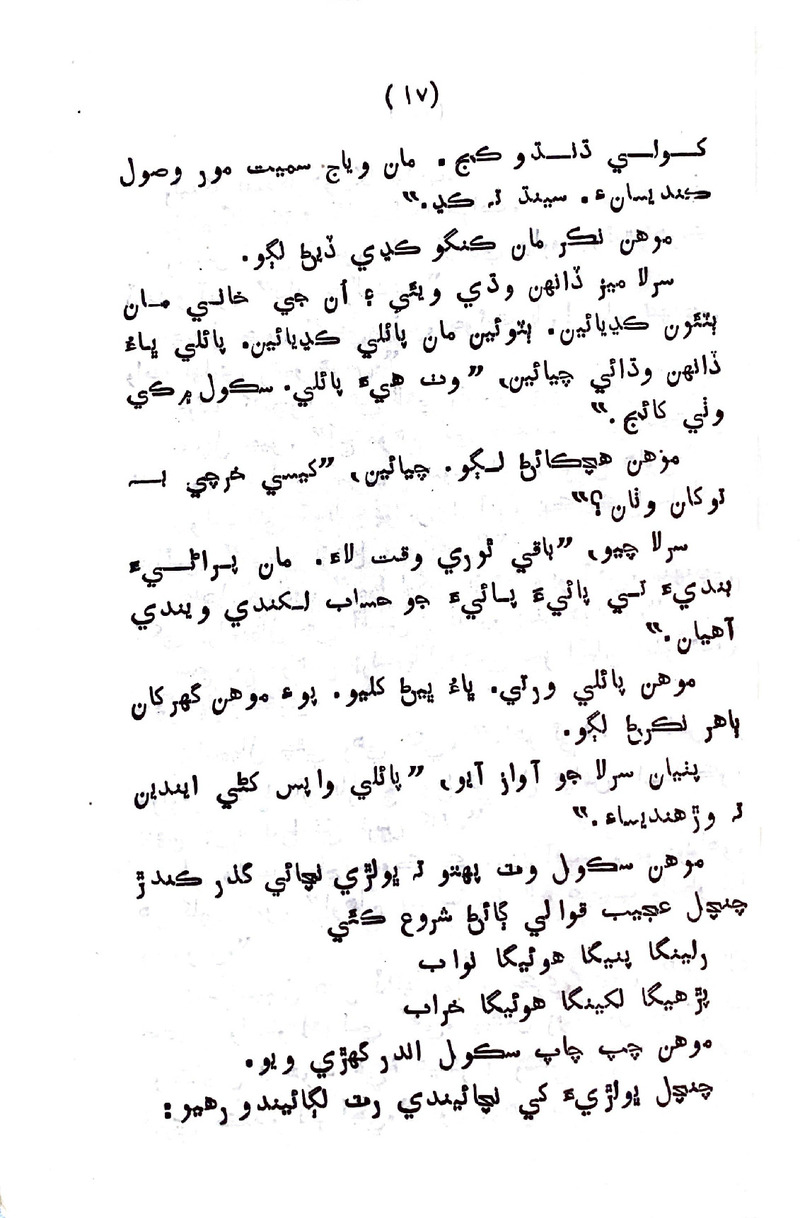 (١٧)
کولي ڌنڌو ڪج. مان وياج سميت مور وصول
ڪنديسانءِ. سينڌ تہ ڪڍ.“
موهن نڪر مان ڪنگو ڪڍي ڏيڻ لڳو.
سرلا ميز ڏانهن وڌي ويئي ۽ اُن جي خالي مان
ٻٽئون ڪڍيائين. ٻٽوئين مان پائلي ڪڍيائين. پائلي ڀاءُ
ڏانهن وڌائي چيائين، ”وٺ هيءَ پائلي. سڪول ۾ ڪي
وٺي کائج.“
موهن هٻڪائڻ لڳو. چيائين، ”کيسي خرچي بہ
توکان وٺان؟“
سرلا چيو، ”باقي ٿوري وقت لاءِ. مان پراڻيءَ
ٻنديءَ تي پائيءَ پائيءَ جو حساب لکندي ويندي
آهيان.“
موهن پائلي ورتي. ڀاءُ ڀيڻ کليو. پوءِ موهن گهر کان
ٻاهر نڪرڻ لڳو.
پٺيان سرلا جو آواز آيو، ”پائلي واپس کڻي ايندين
تہ وڙهنديساءِ.“
موهن سڪول وٽ پهتو تہ ڀولڙي نچائي گذر ڪندڙ
چنچل عجيب قوالي ڳائڻ شروع ڪئي
رلينگا پنيگا هوئيگا نواب
پڙهيگا لکينگا هوئيگا خراب
موهن چپ چاپ سڪول اندر گهڙي ويو.
چنچل ڀولڙيءَ کي نچائيندي رٽ لڳائيندو رهيو: